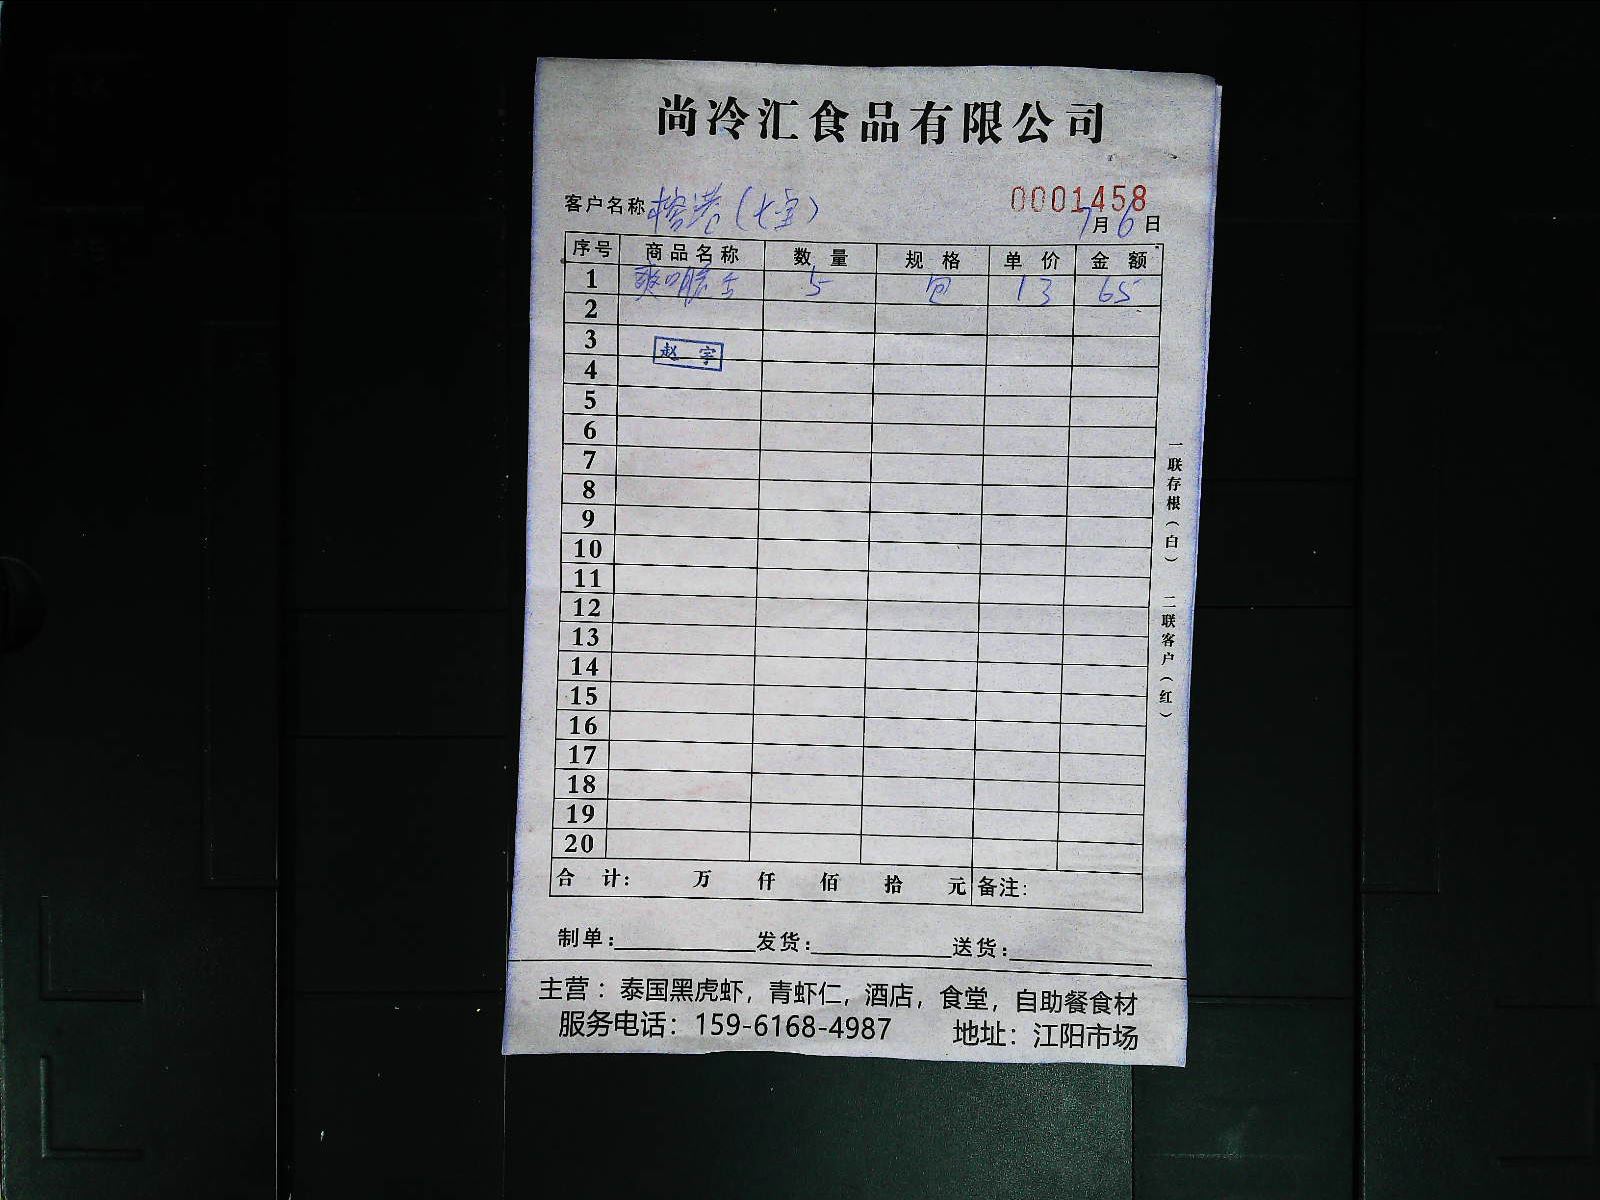 尚冷汇食品有限公司
0001458
客户名称 榕港(七宝) 7月6日
序号 商品名称 数量 规格 单价 金额
1 爽口 5 包 13 65
2
3
赵宇
4
5
6
7
8
9
10
11
12
13
14
15
16
17
18
19
20
合计: 万 仟 佰 拾 元 备注:
制单: 发货: 送货:
主营：泰国黑虎虾，青虾仁，酒店，食堂，自助餐食材
服务电话：159-6168-4987 地址：江阳市场
一联存根(白) 二联客户(红)